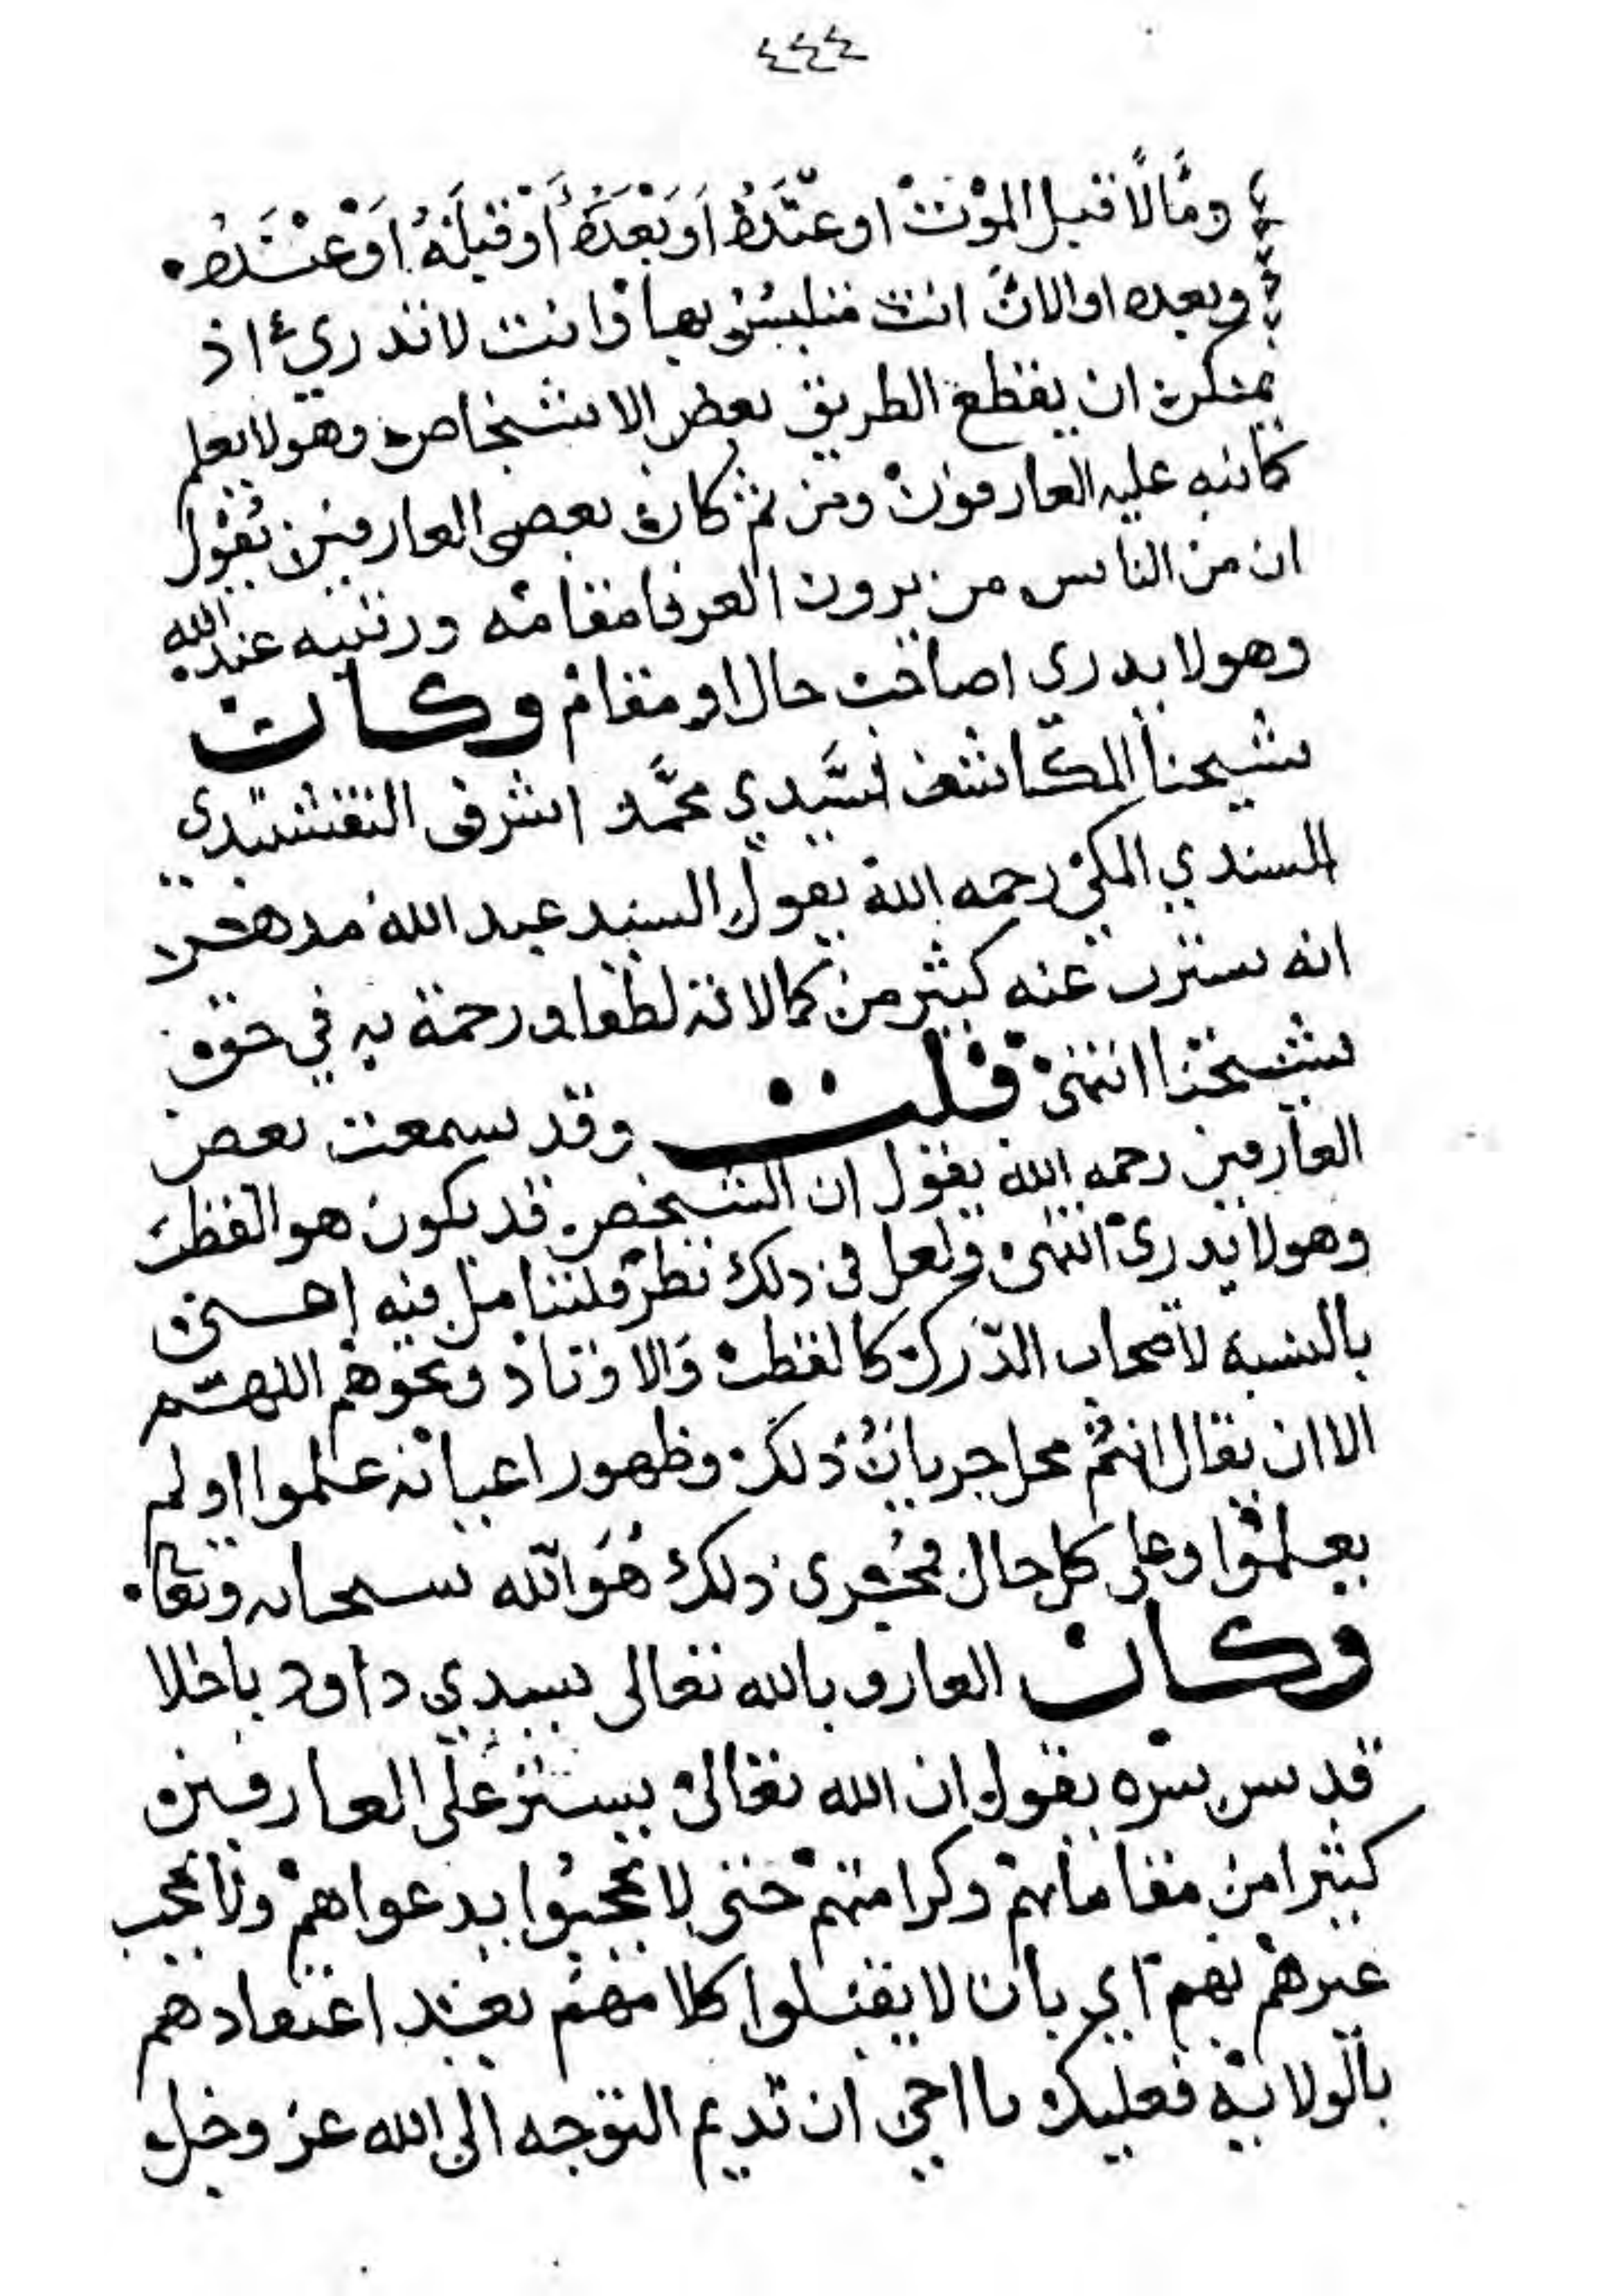 ٤٤٤
ومالا قبل الموت او عنده او بعده أو قبله او عنده
وبعده او الان انت متلبس بها وانت لا تدري اذ
يمكن ان يقطع الطريق بعض الاشخاص وهو لا يعلم
كما نبه عليه العارفون ومن ثم كان بعض العارفين يقول
ان من الناس من يرون العرفا مقامه ورتبته عند الله
وهو لا يدري اصاحب حال او مقام وكان
شيخنا المكاشف لسيدي محمد اشرفى النقشبندي
السندي المكي رحمه الله يقول السيد عبد الله مدهر
انه ستر عنه كثير من كمالاته لطفا ورحمة به في حقه
شيخنا انتهى قلت وقد سمعت بعض
العارفين رحمه الله يقول ان الشخص قد يكون هو القطب
وهو لا يدرى انتهى ولعل في ذلك نظر فلنتامل فيه احسن
بالنسبة لأصحاب الدرك كالقطب والاوتاد ونحوهم اللهم
الا ان يقال انهم محل جريان ذلك وظهور اعيانه علموا او لم
يعلموا وعلى كل حال فمجرى ذلك هو الله سبحانه وتعالى
وكان العارف بالله تعالى سيدي داود باخلا
قدس سره يقول ان الله تعالى يستر على العارفين
كثيرا من مقاماتهم وكرامتهم حتى لا يحجبوا بدعواهم ولا يحجب
غيرهم بهم اي بان لا يقبلوا كلامهم بعند اعتقادهم
بالولاية فعليك يا اخي ان تديم التوجه الى الله عز وجل